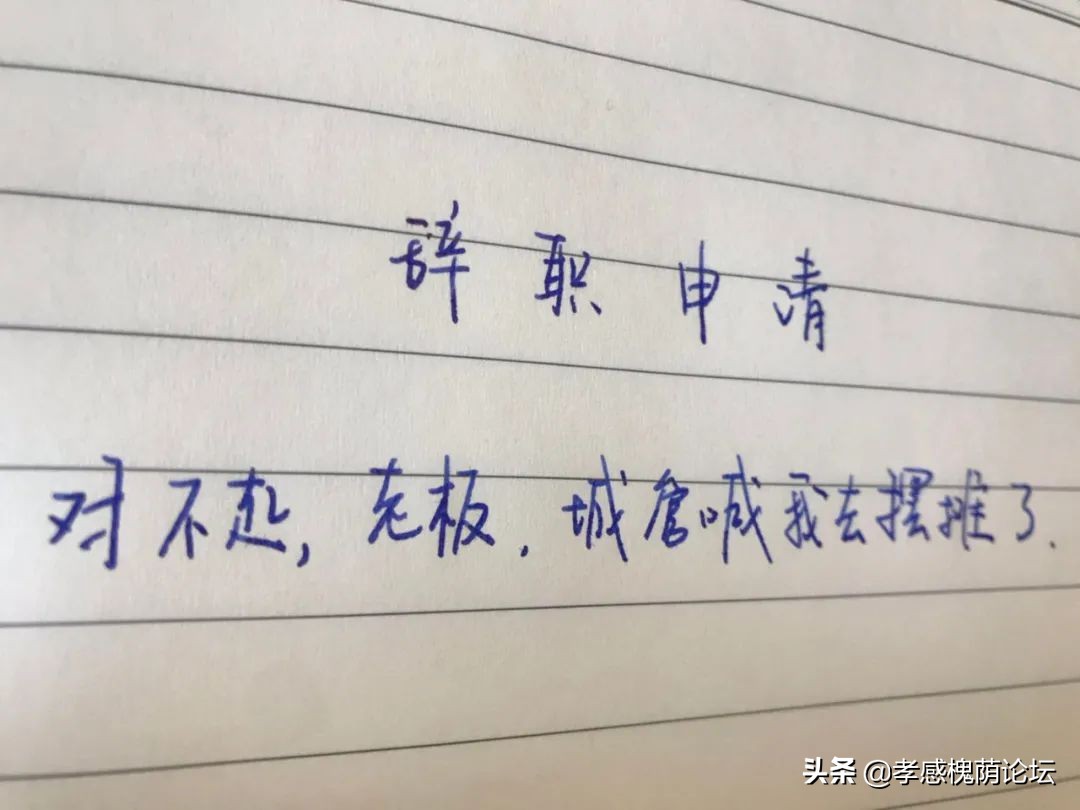 辞职申请
对不起,老板.城管喊我去摆摊了.
头条 @孝感槐荫论坛